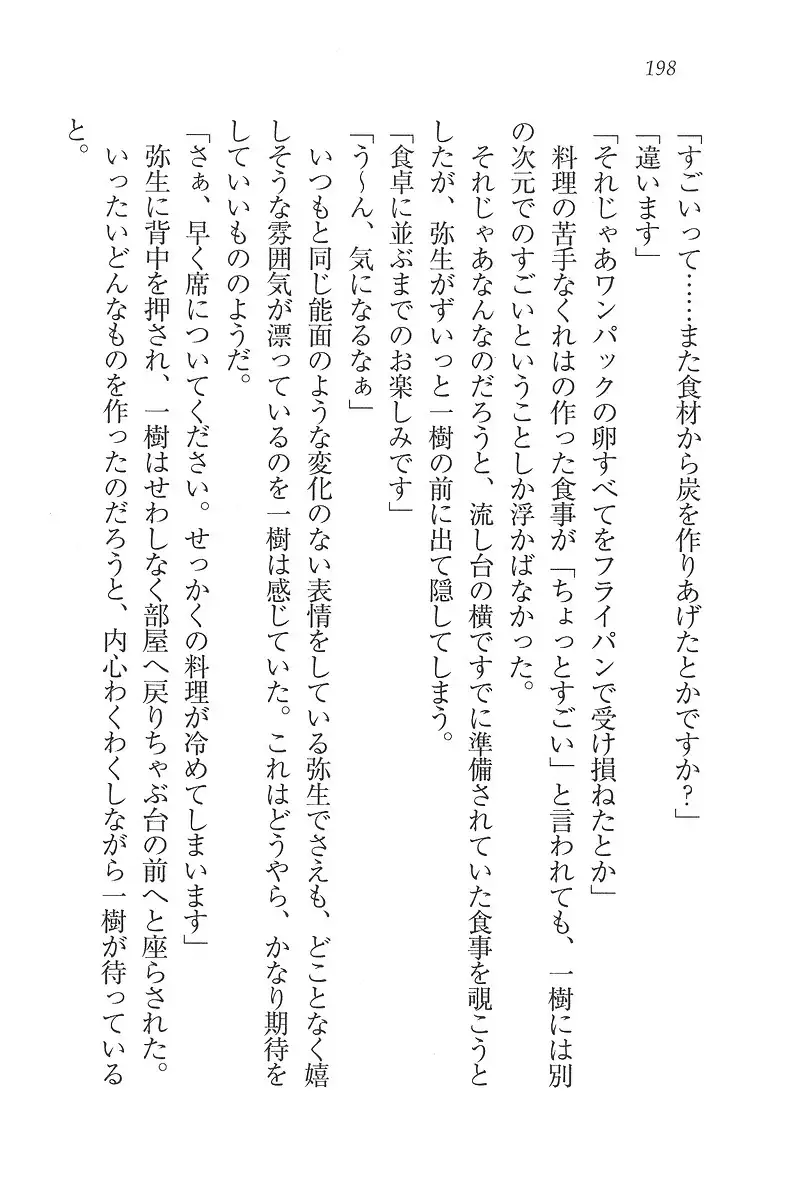 198
「すごいって……また食材から炭を作りあげたとかですか？」
「違います」
「それじゃあワンパックの卵すべてをフライパンで受け損ねたとか」
料理の苦手なくれはの作った食事が「ちょっとすごい」と言われても、一樹には別
の次元でのすごいということしか浮かばなかった。
それじゃあなんなのだろうと、流し台の横ですでに準備されていた食事を覗こうと
したが、弥生がずいっと一樹の前に出て隠してしまう。
「食卓に並ぶまでのお楽しみです」
「う～ん、気になるなぁ」
いつもと同じ能面のような変化のない表情をしている弥生でさえも、どことなく嬉
しそうな雰囲気が漂っているのを一樹は感じていた。これはどうやら、かなり期待を
していいもののようだ。
「さぁ、早く席についてください。せっかくの料理が冷めてしまいます」
弥生に背中を押され、一樹はせわしなく部屋へ戻りちゃぶ台の前へと座らされた。
いったいどんなものを作ったのだろうと、内心わくわくしながら一樹が待っている
と。